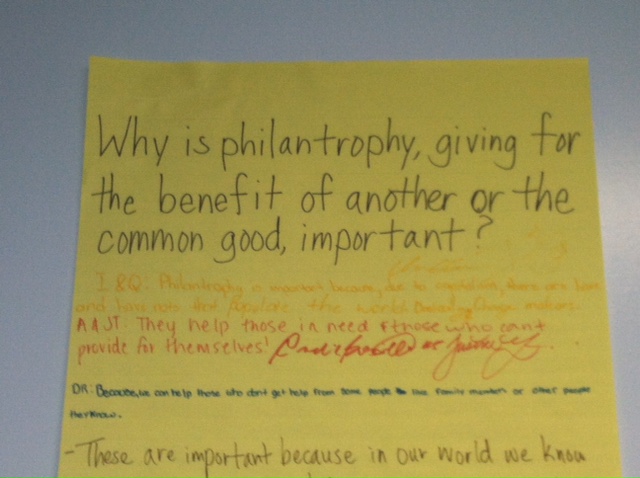 Why is philantrophy, giving for
the benefit of another or the
common good, important?
I & Q: Philantrophy is important because, due to capitalism, there are haves
and have nots that populate the world. Change makers
A A JT: They help those in need & those who cant
provide for themselves!
DR: Because, we can help those who don't get help from some people like family members or other people
they know.
- These are important because in our world we know